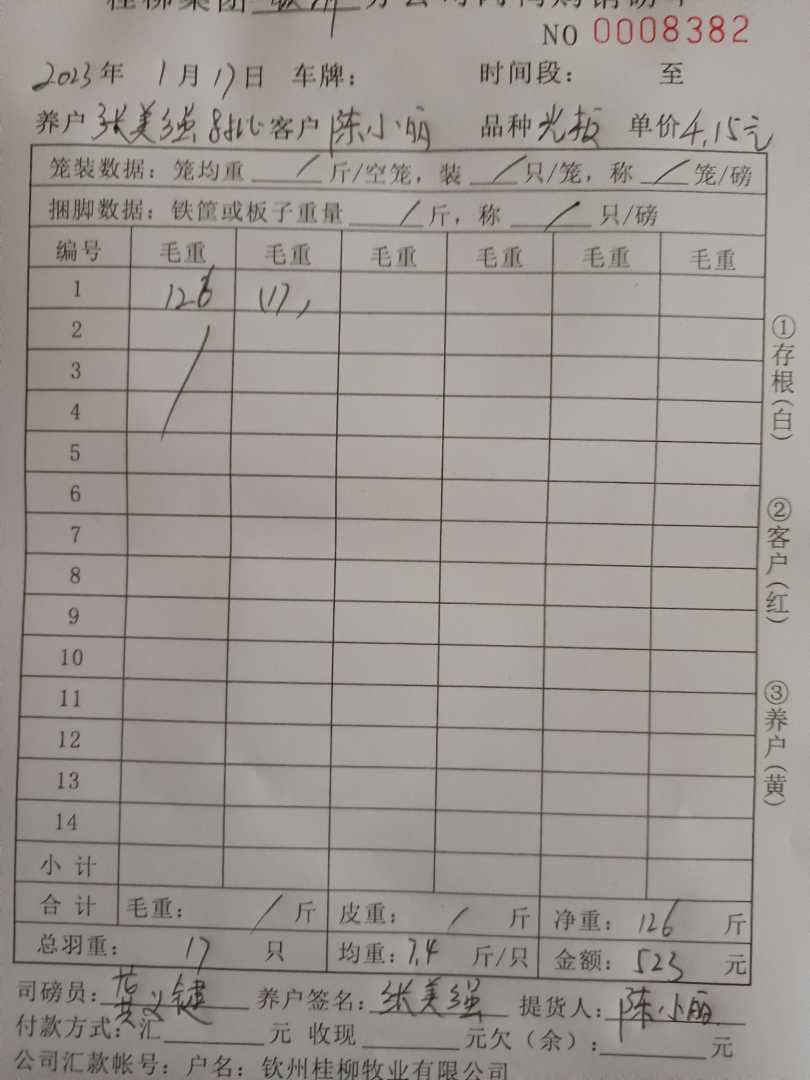 桂柳集团 钦州 分公司肉鸭购销磅单
NO 0008382
2023年 1月17日 车牌： 时间段： 至
养户 张美强 客户 陈小丽 品种 光板 单价 4.15元
笼装数据：笼均重 / 斤/空笼，装 / 只/笼，称 / 笼/磅
捆脚数据：铁筐或板子重量 / 斤，称 / 只/磅
编号 毛重 毛重 毛重 毛重 毛重 毛重
1 126 (17)
2
3
4
5
6
7
8
9
10
11
12
13
14
小计
合计 毛重： / 斤 皮重： / 斤 净重： 126 斤
总羽重： 17 只 均重：7.4 斤/只 金额：523 元
司磅员：黄义键 养户签名：张美强 提货人：陈小丽
付款方式：汇 元 收现 元欠（余）： 元
公司汇款帐号：户名：钦州桂柳牧业有限公司
①存根（白）
②客户（红）
③养户（黄）